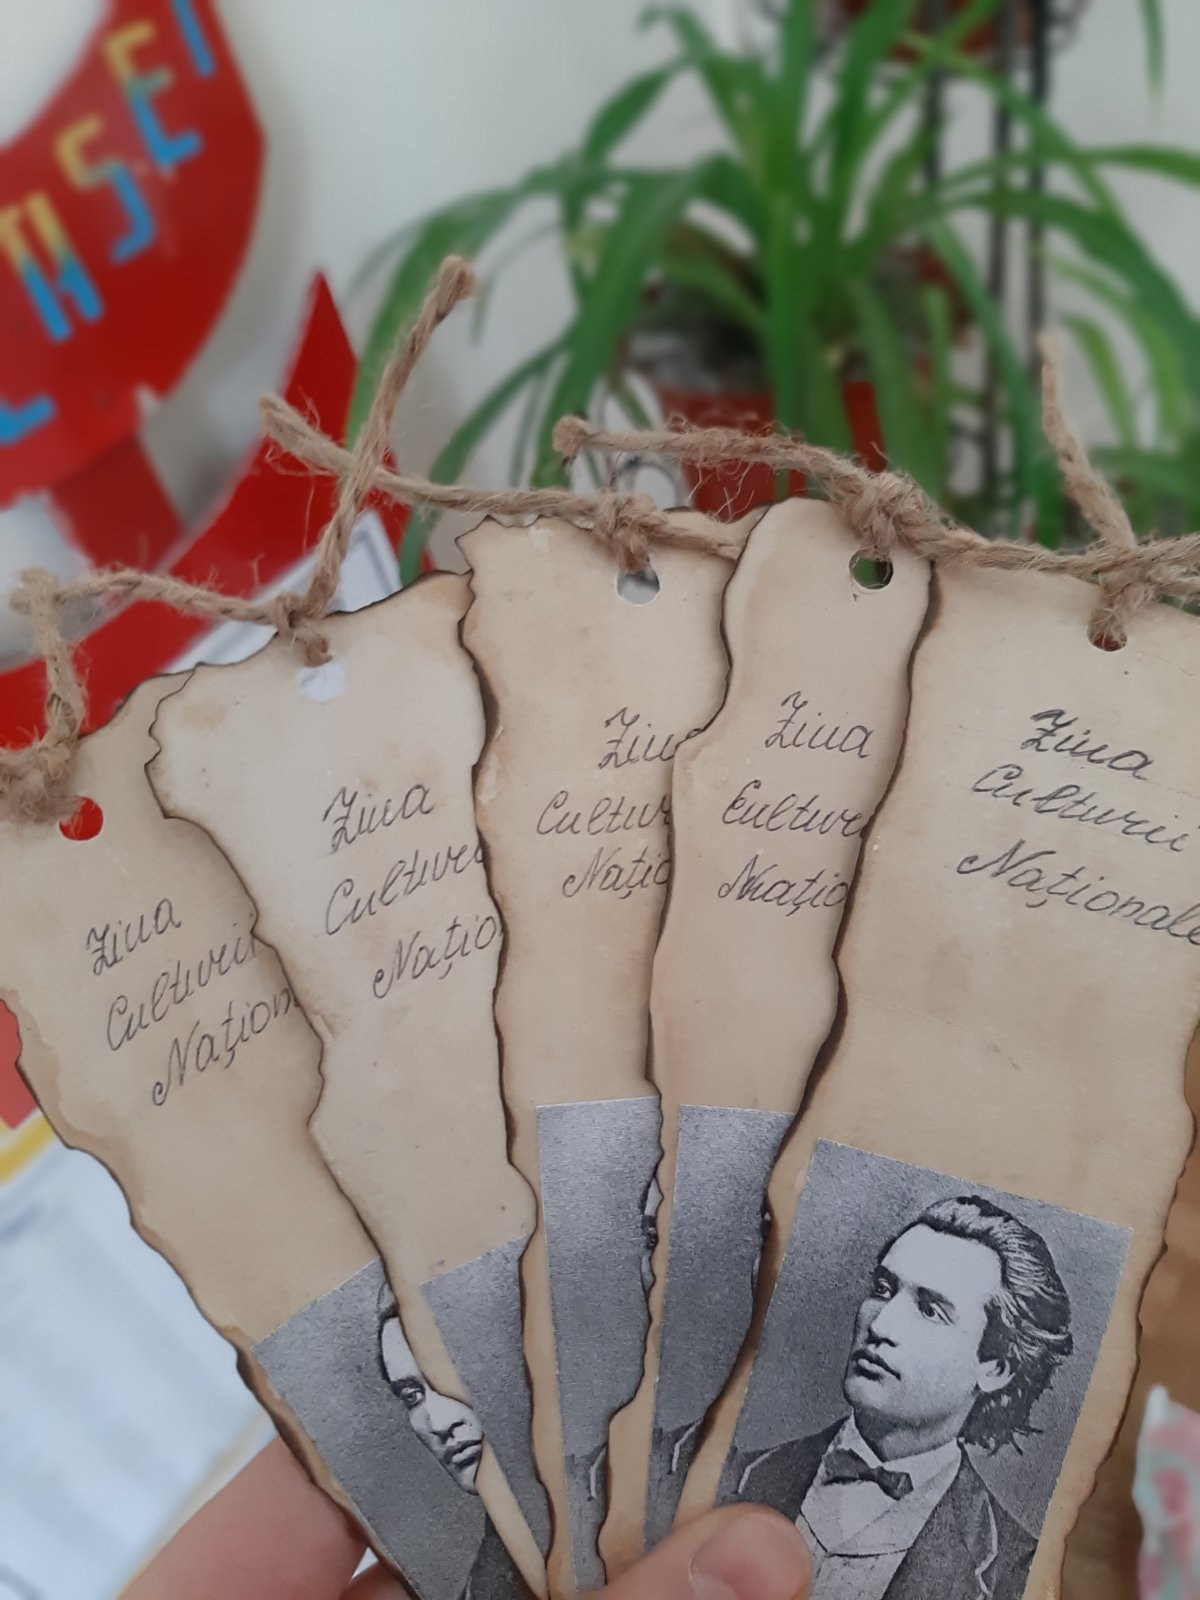 Ziua
Culturii
Naţion
Ziua
Culturi
Naţio
Ziu
Cultur
Naţio
Ziua
Culturi
Naţio
Ziua
Culturii
Naţionale